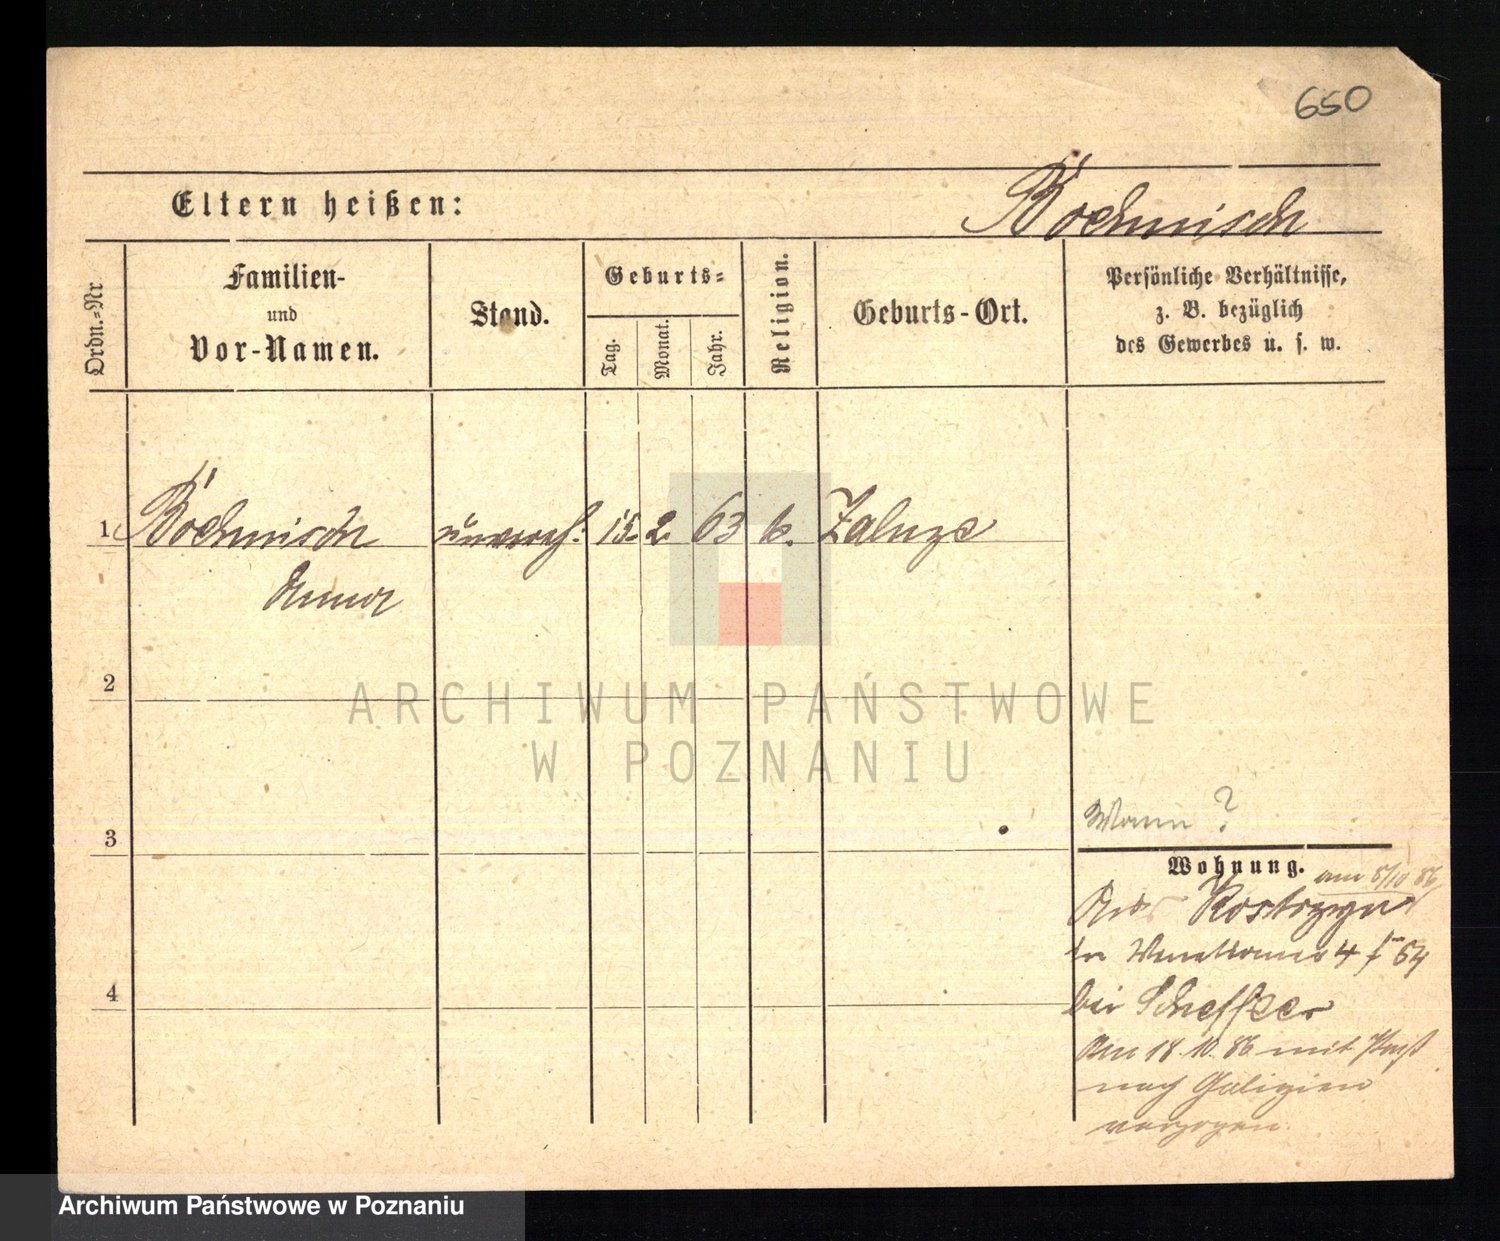 650
Eltern heißen:
Böhmisch
Ordn.=Nr
Familien-
und
Vor-Namen.
Stand.
Geburts=
Tag.
Monat.
Jahr.
Religion.
Geburts-Ort.
Persönliche Verhältnisse,
z. B. bezüglich
des Gewerbes u. s. w.
1 Böhmisch unvereh: 15. 2. 63 k. Zaluze
Anna
2
ARCHIWUM PAŃSTWOWE
W POZNANIU
3
Wann?
Wohnung.
am 5/10 86
Aus Kostrzyn
4 f 64
4
bei Scheffler
Am 18.10.86 mit Paß
nach Galizien
verzogen.
Archiwum Państwowe w Poznaniu